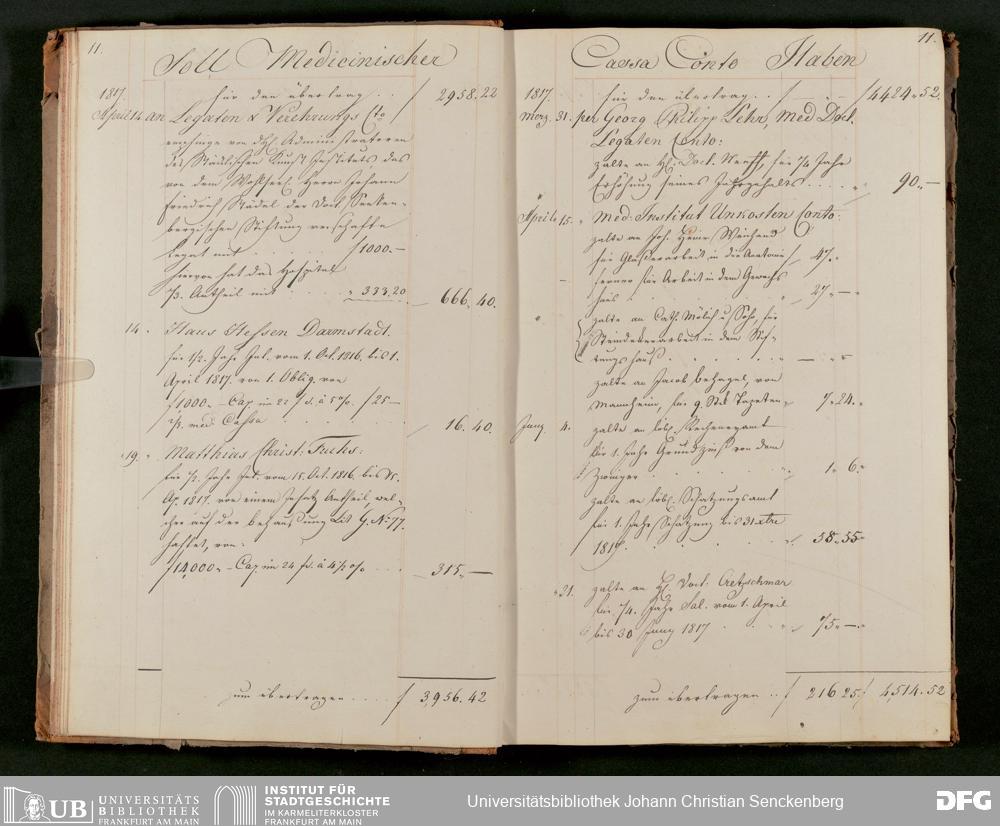 11.
Soll Medicinischer
1817. für den übertrag . . f 2958.22
April 14. an Legaten & Verehrungs Cto
empfinge von dhl. Administratoren
des Städelschen Kunst Instituts das
von dem Wohlseel. Herrn Johann
Friedrich Städel der Doct. Senken-
bergischen Stiftung verschafte
Legat mit . . . . f 1000.–
hievon hat das Hospital
1/3 Antheil mit . . . „ 333.20. 666.40.
14. „ Haus Hessen Darmstadt.
für 1/2 Jahr Int. vom 1. Oct. 1816. bis 1.
April 1817. von 1. Oblig. von
f 1000.– Cap. im 22 f. à 5 % f 25–
Cassa . . . . 16. 40.
19. „ Matthias Christ: Fuchs:
für 1/2 Jahr Int. vom 15. Oct. 1816. bis 15.
Ap. 1817. von einem Insatz Antheil, wel-
cher auf der behaußung Lit. G. No. 77.
haftet, von
f 14,000.– Cap. im 24 f. à 4 1/2 % . . . 315.„—
zum übertragen . . . . f 3,956.42
11.
Cassa Conto Haben
1817. für den übertrag . . f — . — f 4424.52.
Merz. 31. per Georg Philipp Lehr, Med. Doct.
Legaten Conto:
zalte an H. Doct. Neeff, für 1/4 Jahr
Erhöhung seines Jahrgehalts . . . . 90.„—
Aprile 15. „ Med. Institut Unkosten Conto:
zalte an Joh. Henr. Weinhard
für Glaßerarbeit in die Anatomie f 47.„
ferner für Arbeit in dem Gewächs
haus . . . . 27.„—„
zalte an Cath. u. Sohn, für
Steindeckerarbeit in dem Stif-
tungshauß . . . .
zalte an Jacob behagel, von
Mannheim, für 9. Stk Tapeten „ 7.„24.„
Juny 4. zalte an löbl. Rechneyamt
für 1. Jahr Grundzinß von dem
Zwinger . . . . 1.„ 6.„
zalte an löbl. Schatzungsamt
für 1. Jahr Schatzung bis 31 xbre
1816 . . . . 58.„55.„
„ 21. zalte an H. Doct. Cretzschmar
für 1/4. Jahr Sal. vom 1. April
bis 30 Juny 1817 . . . 75.„—.„
zum übertragen . . f 216.25. f 4,514.52
UB UNIVERSITÄTS
BIBLIOTHEK
FRANKFURT AM MAIN
INSTITUT FÜR
STADTGESCHICHTE
IM KARMELITERKLOSTER
FRANKFURT AM MAIN
Universitätsbibliothek Johann Christian Senckenberg
DFG